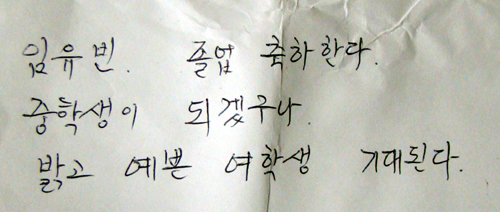 임유빈. 졸업 축하한다.
중학생이 되겠구나.
밝고 예쁜 여학생 기대된다.